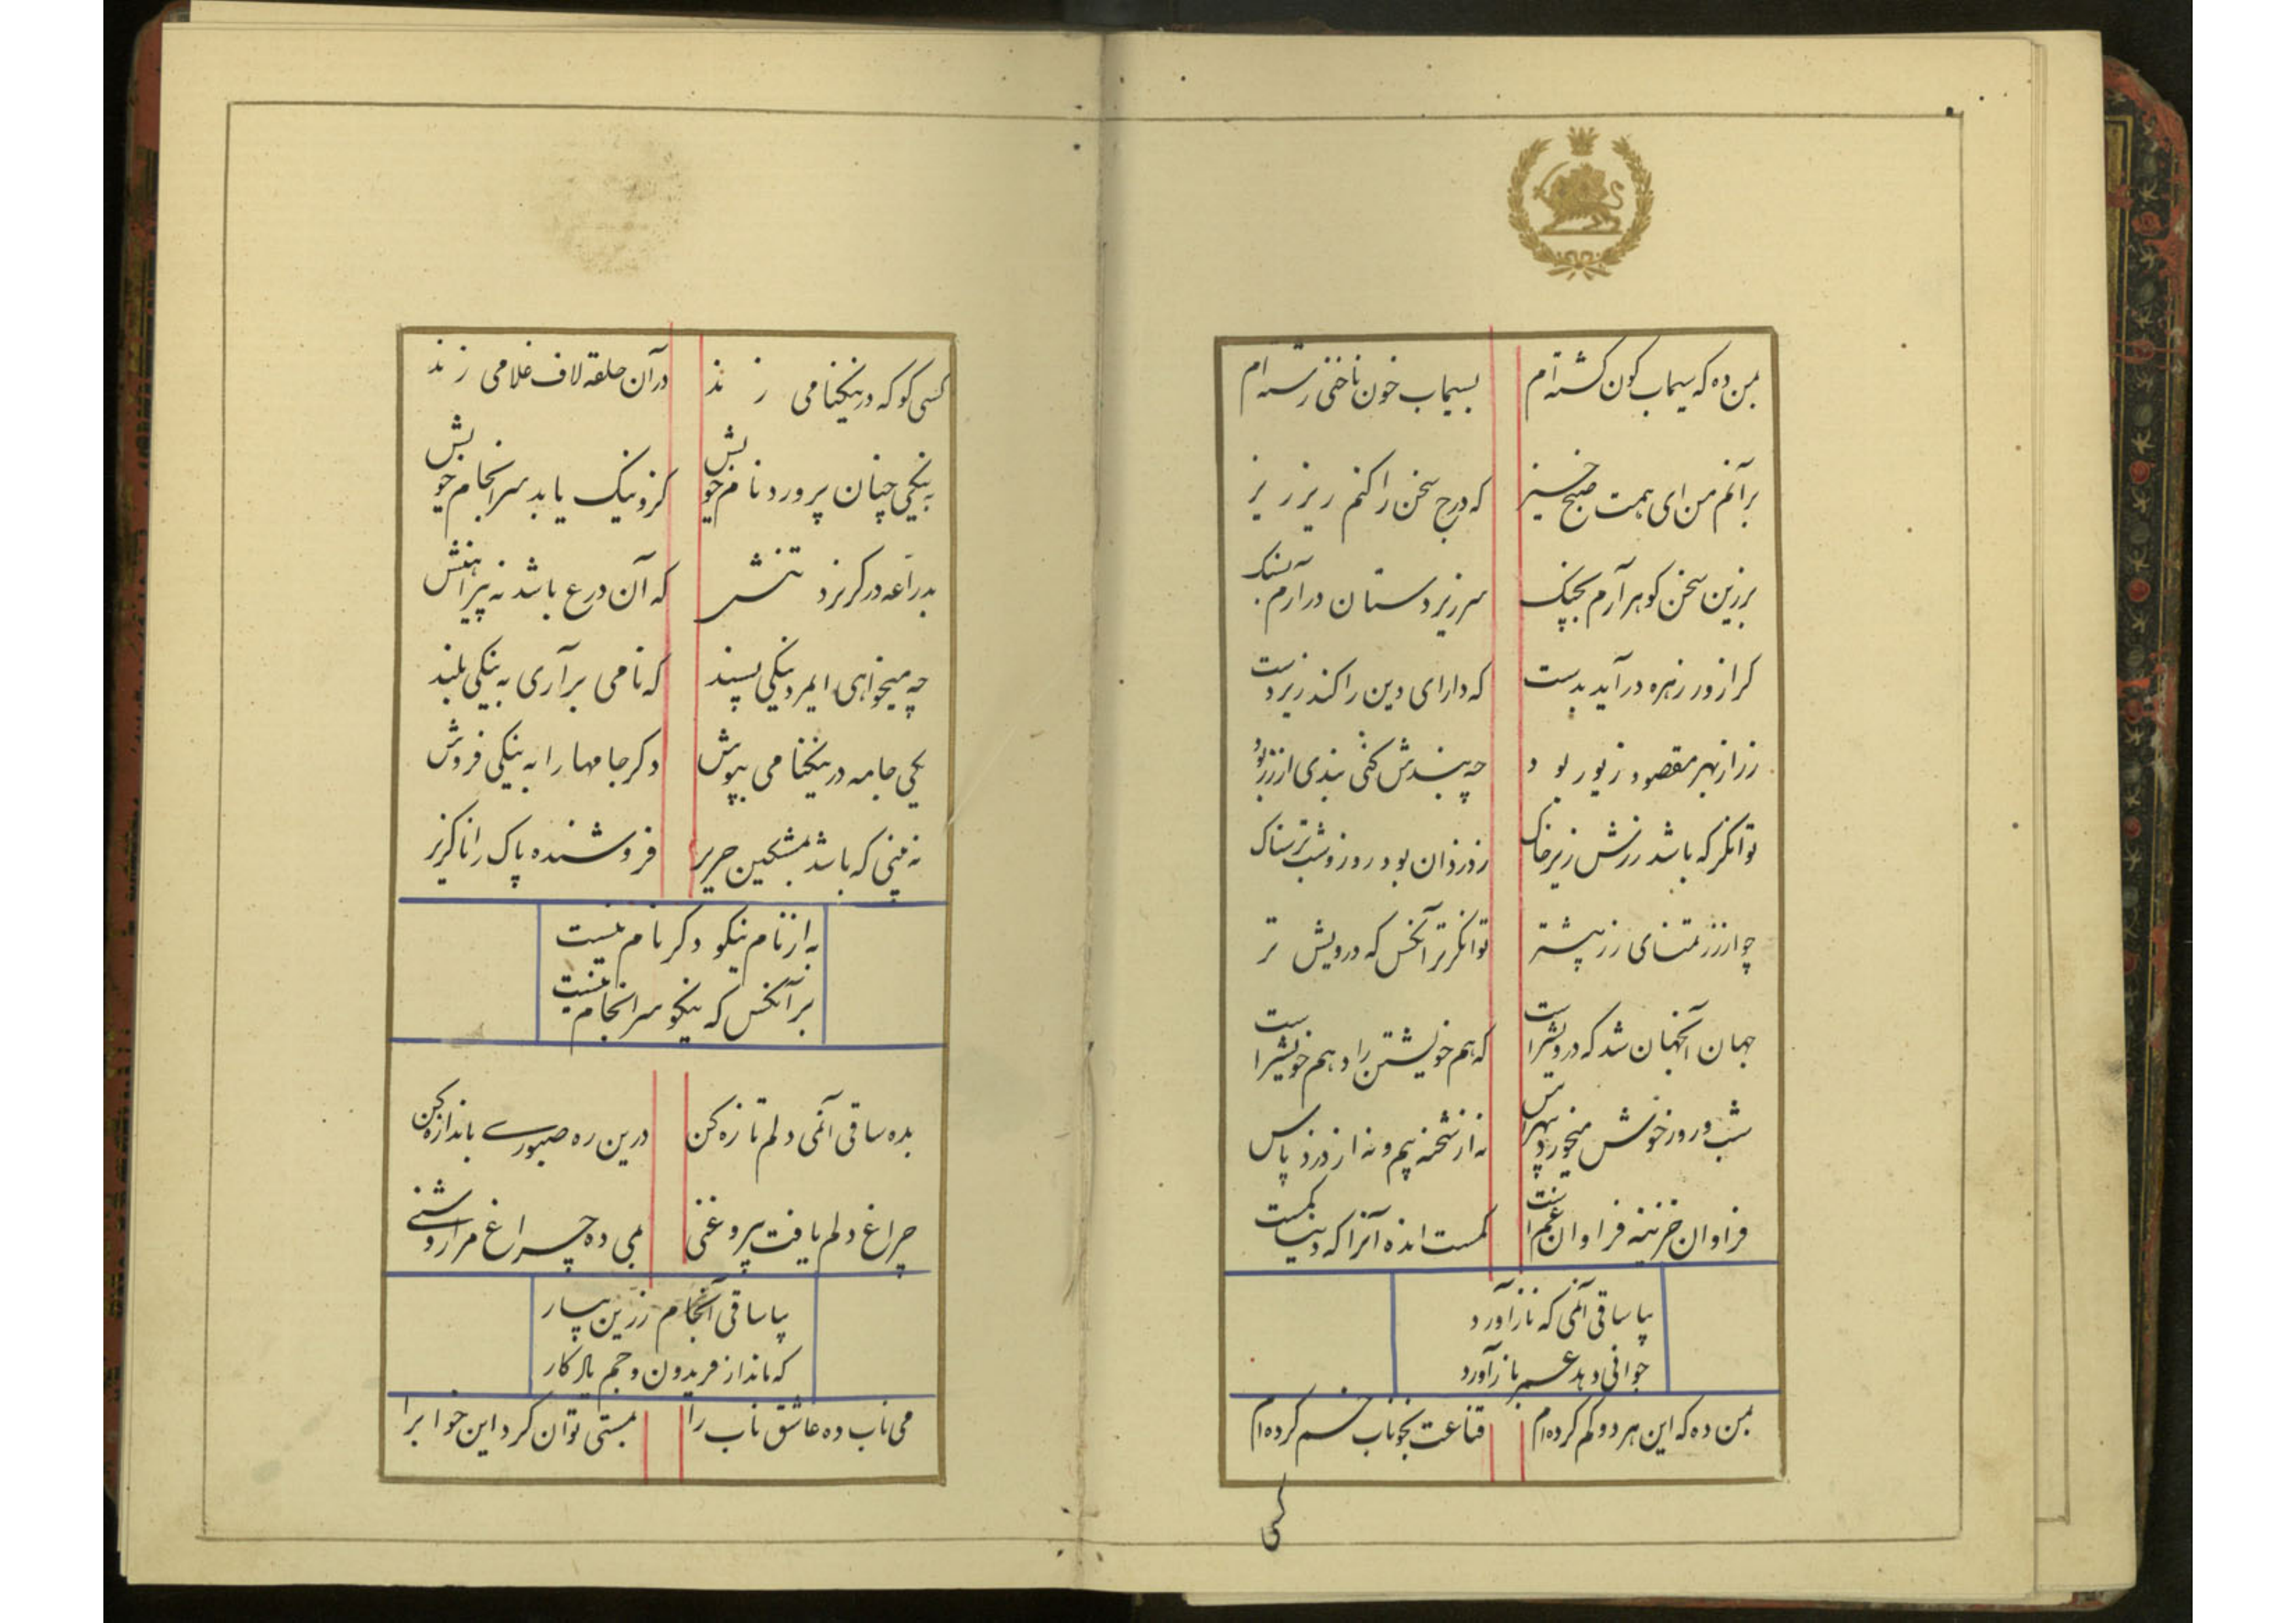 بمن ده که سیماب کون کشته ام بسیماب خون ناخنی رسته ام
برآنم من ای همت صبح خیز که درج سخن را کنم ریز ریز
برزین سخن کوهر آرم بچنک سر زیردستان درآرم بسنک
کرا زور زهره درآید بدست که دارای دین را کند زیردست
زر از بهر مقصود زیور بود چه بندش کنی بندی از زر بود
توانکر که باشد زرش زیر خاک ز دزدان بود روز و شب ترسناک
چو از زر تمنای زر بیشتر توانکرتر آنکس که درویش تر
جهان آنجهان شد که درویشراست که هم خویشتن را و هم خویشراست
شب و روز خوش میخورد بیهراس نه از شحنه بیم و نه از دزد پاس
فراوان خزینه فراوان غمست کمست انده آنرا که دنیا کمست
بیا ساقی آنمی که ناز آورد
جوانی دهد عمر باز آورد
بمن ده که این هر دو کم کرده ام قناعت بخوناب خم کرده ام
کسی
کسی کو که در نیکنامی زند در آن حلقه لاف غلامی زند
به نیکی چنان پرورد نام خویش کزو نیک یابد سرانجام خویش
بدراعه در کریزد تنش که آن درع باشد نه پیراهنش
چه میخواهی ایمرد نیکی پسند که نامی برآری به نیکی بلند
یکی جامه در نیکنامی بپوش دکر جامها را به نیکی فروش
نه بینی که باشد بمشکین حریر فروشنده پاک را ناکزیر
به از نام نیکو دکر نام نیست
بر آنکس که نیکو سرانجام نیست
بده ساقی آنمی دلم تازه کن درین ره صبوری باندازه کن
چراغ دلم یافت بیروغنی بمی ده چراغ مرا روشنی
بیا ساقی آنجام زرین بیار
که ماند از فریدون و جم یادکار
می ناب ده عاشق ناب را بمستی توان کرد این خوابرا